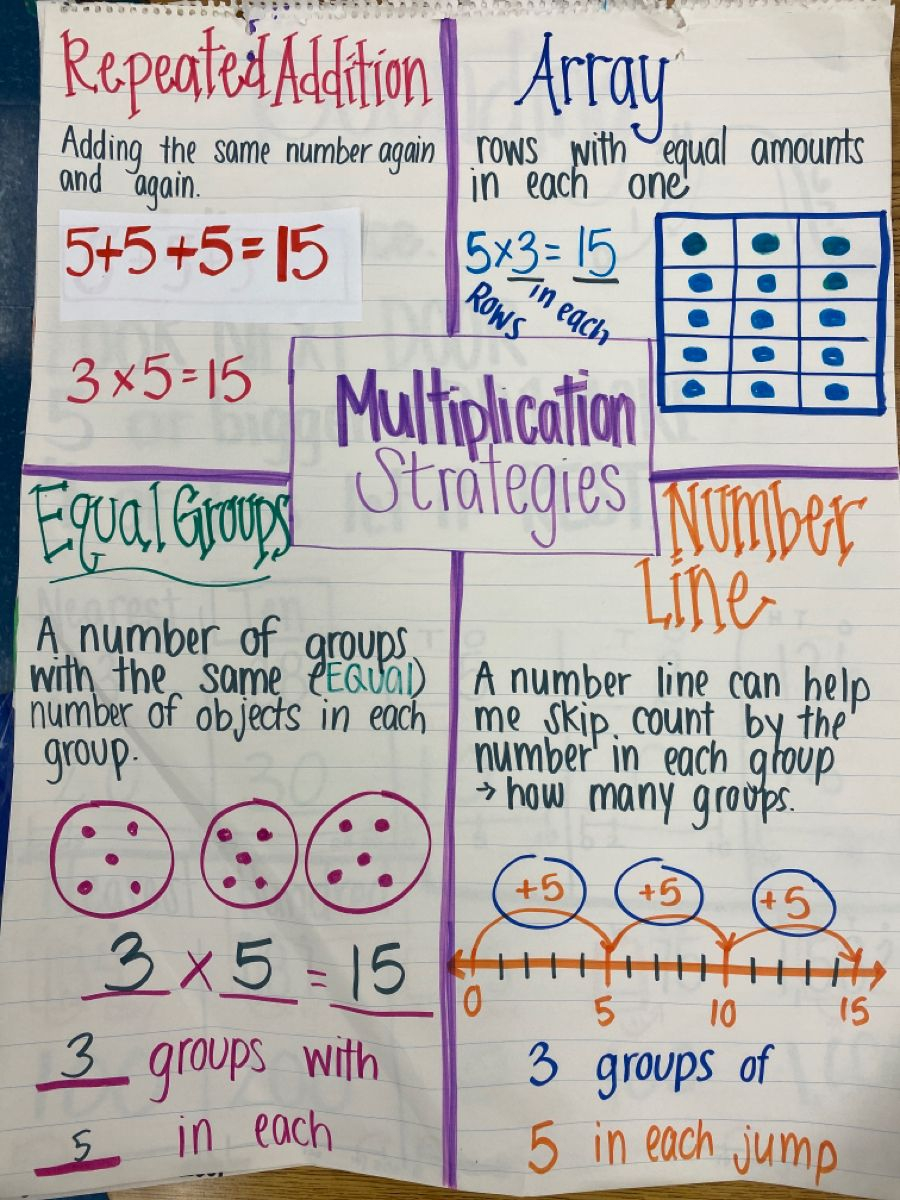 Repeated Addition
Adding the same number again
and again.
5+5+5=15
3×5=15
Array
rows with equal amounts
in each one
5×3=15
Rows
in each
Multiplication
Strategies
Equal Groups
A number of groups
with the same (EQUAL)
number of objects in each
group.
3 × 5 = 15
3 groups with
5 in each
Number
Line
A number line can help
me skip count by the
number in each group
→ how many groups.
+5 +5 +5
0 5 10 15
3 groups of
5 in each jump